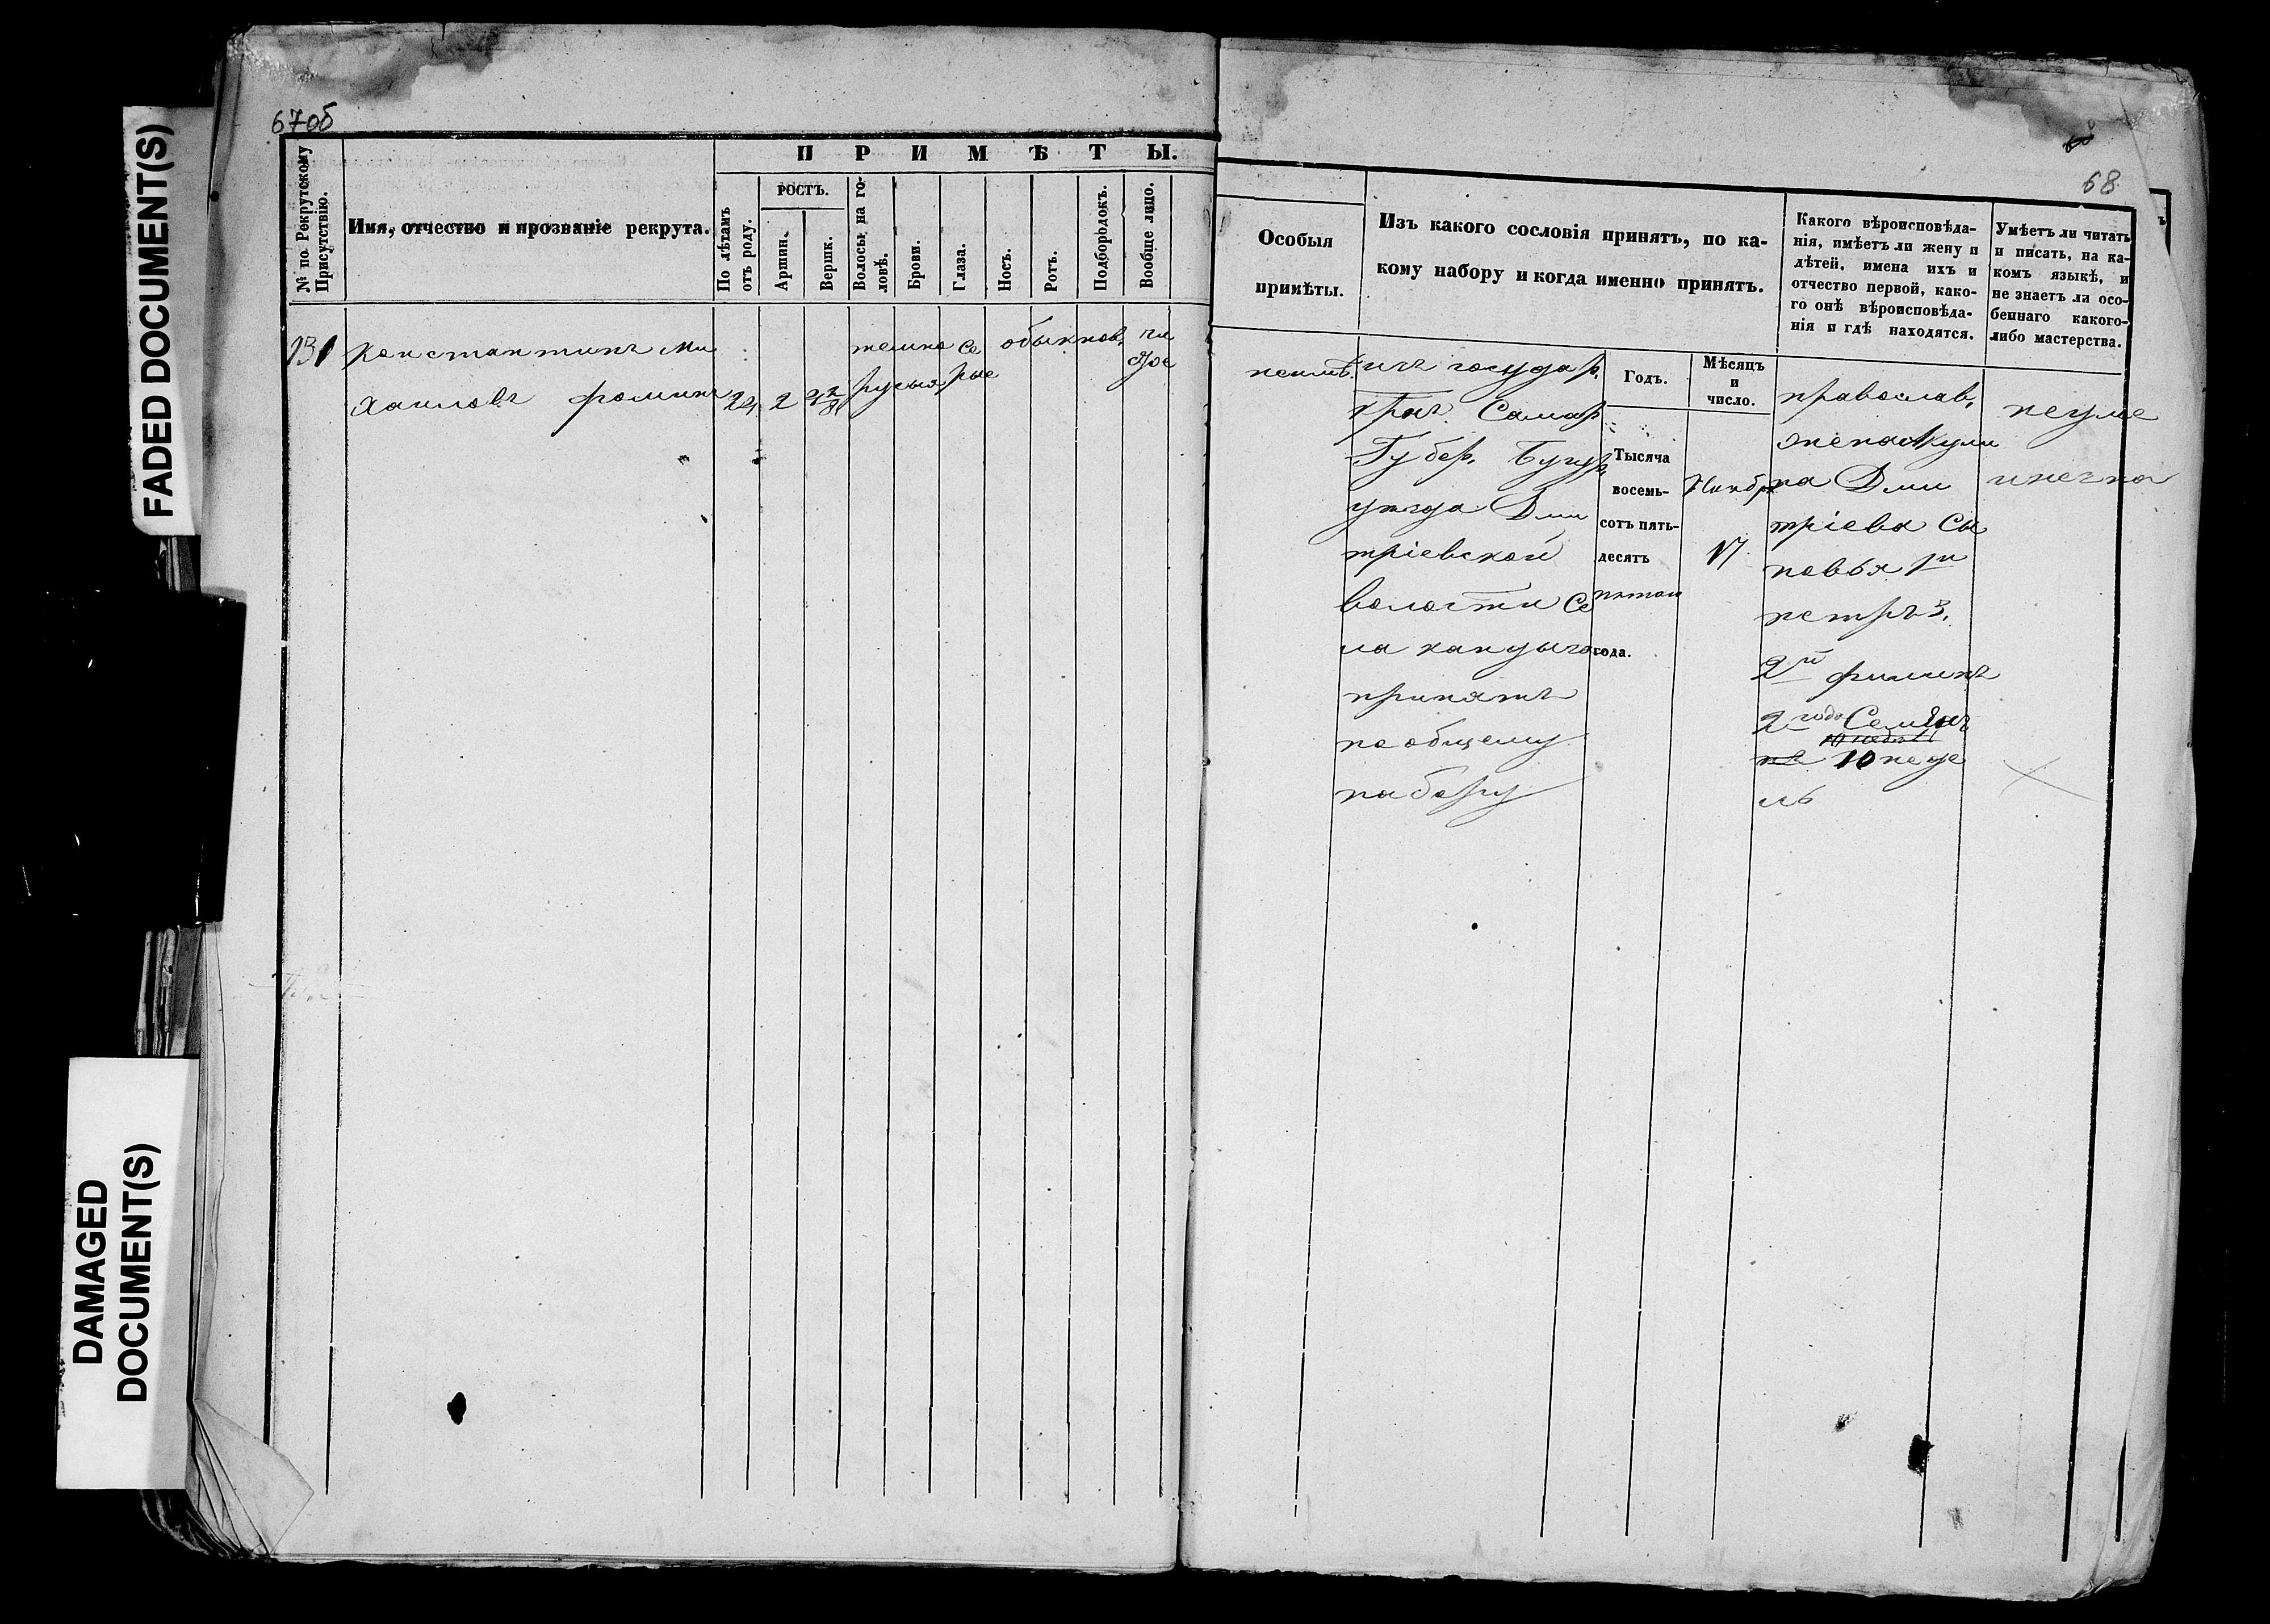 FADED DOCUMENT(S)
DAMAGED
DOCUMENT(S)
67об
№ по Рекрутскому
Присутствію.
Имя, отчество и прозваніе рекрута.
ПРИМѢТЫ.
По лѣтамъ
отъ роду.
РОСТЪ.
Аршин.
Вершк.
Волосы на го-
ловѣ.
Брови.
Глаза.
Носъ.
Ротъ.
Подбородокъ.
Вообще лицо.
131
Константинъ Ми
хаиловъ Фоминъ
2
темно
русыя
се
рые
обыкнов.
чи
стое
68
Особыя
примѣты.
Изъ какого сословія принятъ, по ка-
кому набору и когда именно принятъ.
Какого вѣроисповѣда-
нія, имѣетъ ли жену и
дѣтей, имена ихъ и
отчество первой, како-
го онѣ вѣроисповѣда-
нія и гдѣ находятся.
Умѣетъ ли читать
и писать, на ка-
комъ языкѣ, и
не знаетъ ли осо-
беннаго какого-
либо мастерства.
неимѣ.
изъ государ.
крес. Самар
Губер. Бугур.
уезда Дми
тріевской
волости се
ла кандыза
принятъ
по общему
набору
Годъ.
Тысяча
восемь-
сотъ пять-
десятъ
пятаго
года.
Мѣсяцъ
и
число.
Ноября
17
православ.
жена Акули
на Дми
тріева сы
новья 1й
петръ 3.
2й филипъ
2 года Семёнъ
10 неде
ль
неуме